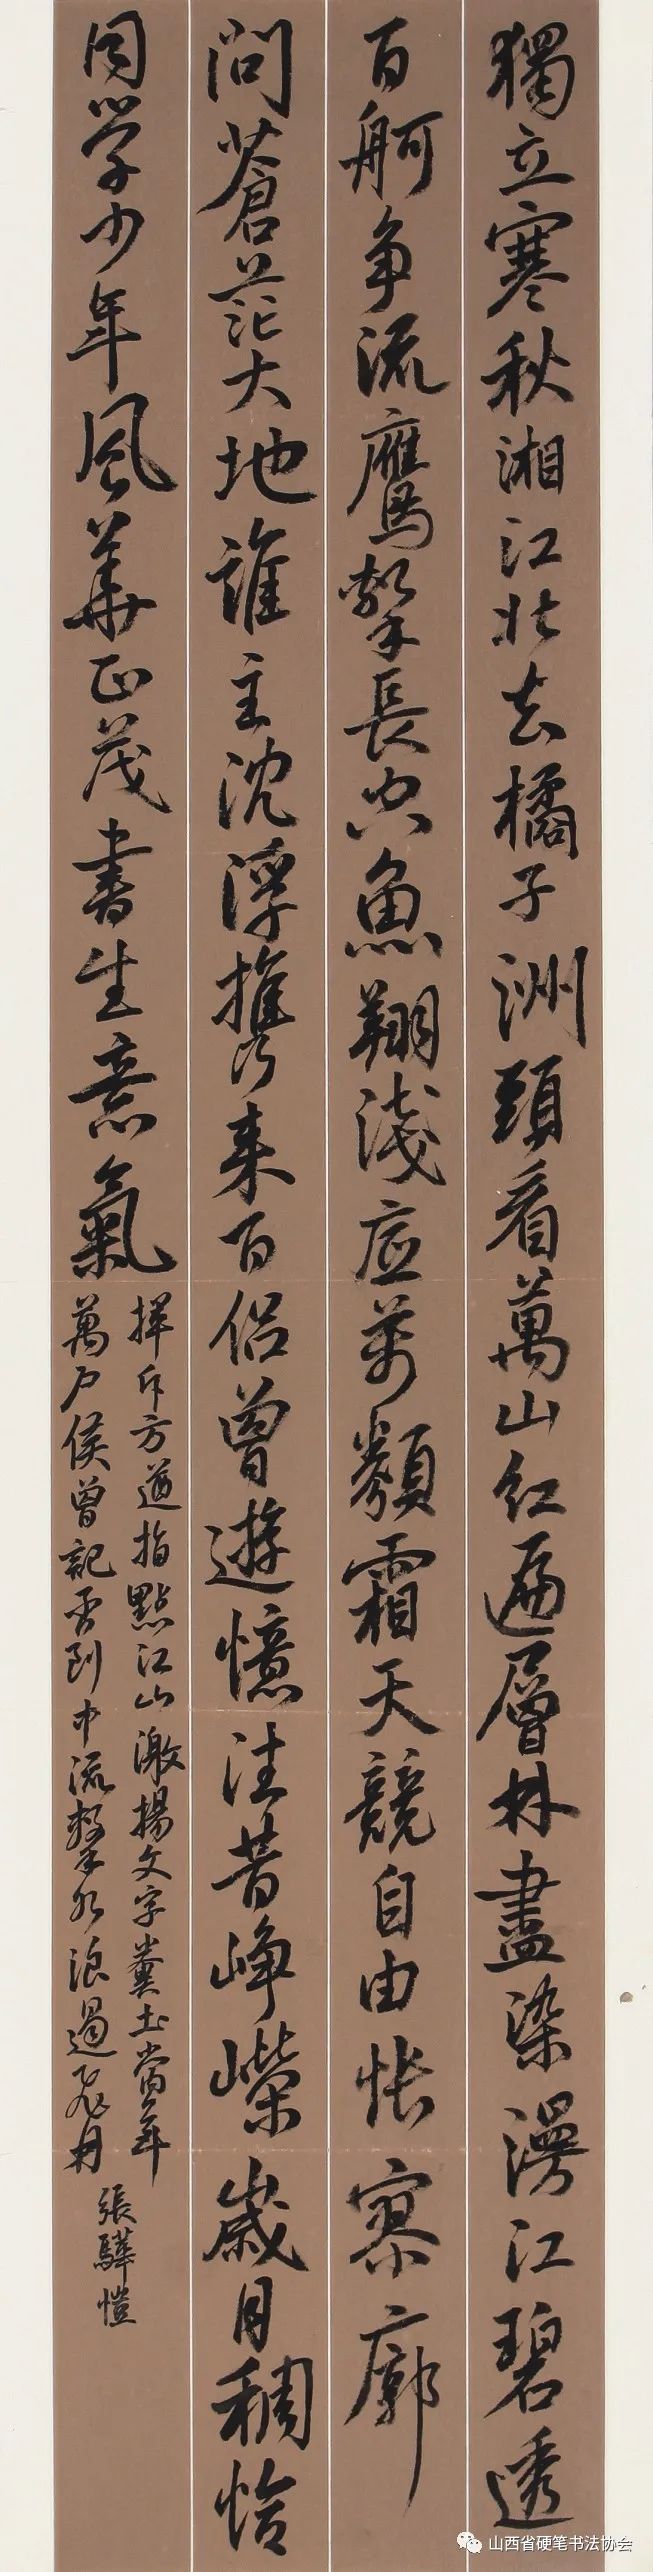 獨立寒秋湘江北去橘子洲頭看萬山红遍層林盡染漫江碧透
百舸争流鷹擊長空魚翔淺底萬類霜天競自由悵寥廓
問蒼茫大地誰主沈浮攜来百侣曾遊憶往昔崢嶸歲月稠恰
同学少年風華正茂書生意氣
揮斥方遒指點江山激揚文字糞土當年
萬户侯曾記否到中流擊水浪遏飛舟
張驊愷
山西省硬笔书法协会